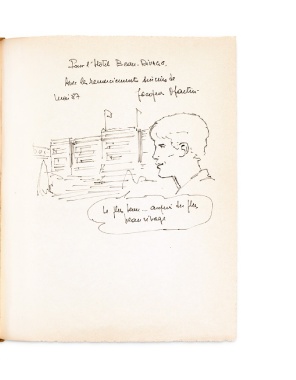 Pour l'Hôtel Beau-Rivage,
Avec les remerciements sincères de
mai 87 Jacques Martin
Le plus beau... auprès du plus
beau rivage